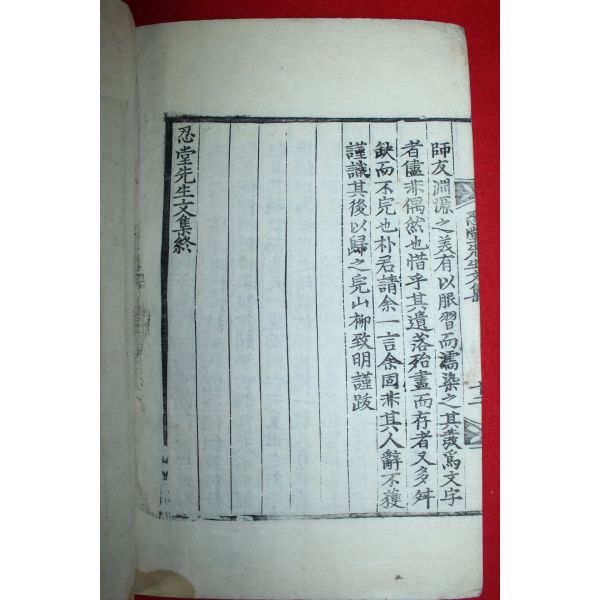 師友淵源之美有以服習而濡染之其發爲文字
者儘非偶然也惜乎其遺落殆盡而存者又多舛
缺而不完也朴君請余一言余固非其人辭不獲
謹識其後以歸之完山柳致明謹跋
忍堂先生文集終
忍堂先生文集